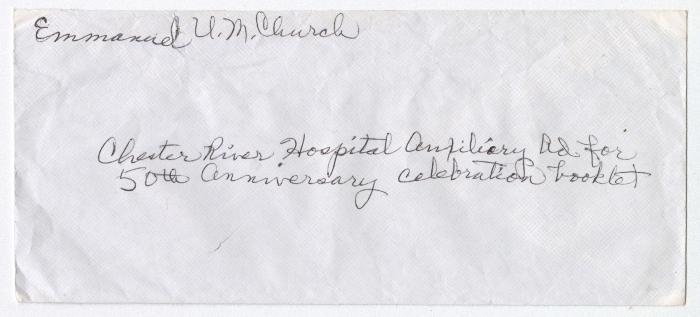 Emmanuel U.M. Church
Chester River Hospital Auxiliary Ad for
50th Anniversary celebration booklet